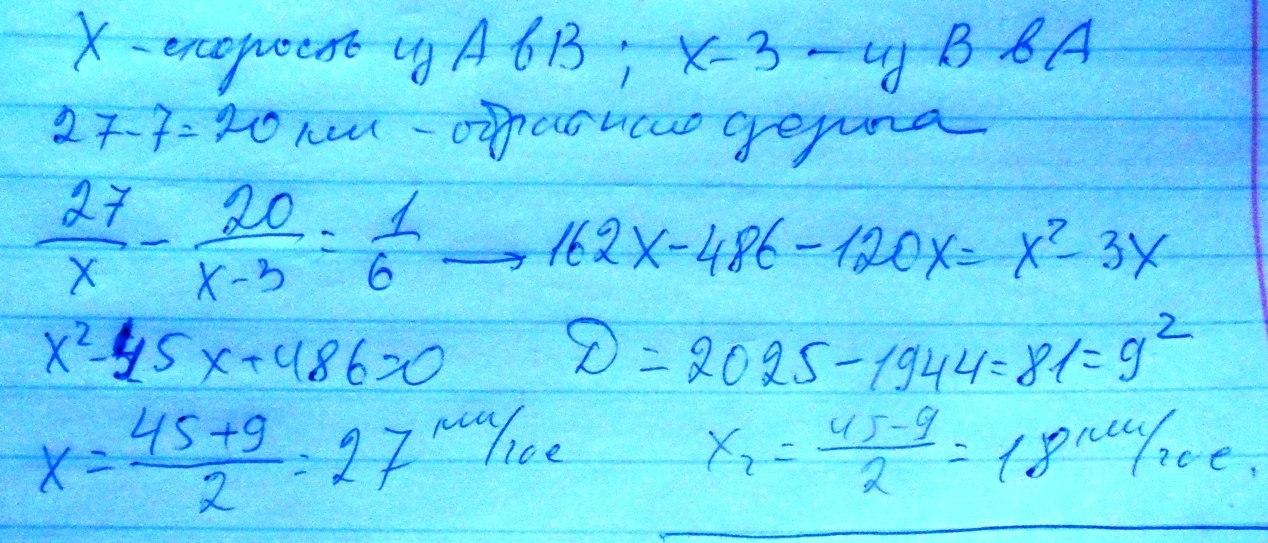 X - скорость из A в B ; x-3 - из B в A
27-7=20 км - обратная дорога
27/x - 20/(x-3) = 1/6 → 162x-486-120x= x²-3x
x²-45x+486=0 D=2025-1944=81=9²
x = (45+9)/2 = 27 км/час x₂ = (45-9)/2 = 18 км/час.